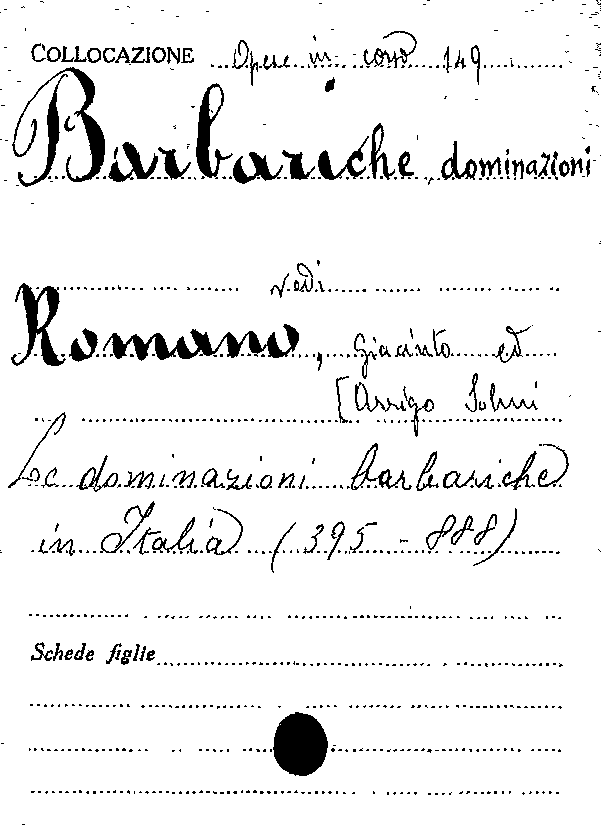 COLLOCAZIONE Opere in corso 149
Barbariche, dominazioni
vedi
Romano, Giacinto ed
[Arrigo Solmi
Le dominazioni barbariche
in Italia (395 - 888)
Schede figlie